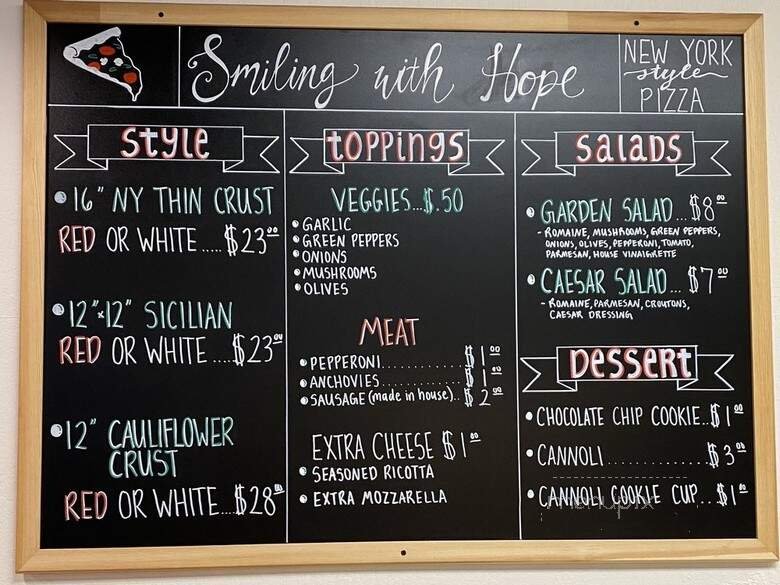 Smiling with Hope
NEW YORK
style
PIZZA
style
16" NY THIN CRUST
RED OR WHITE.....$23⁰⁰
12"x12" SICILIAN
RED OR WHITE....$23⁰⁰
12" CAULIFLOWER
CRUST
RED OR WHITE...$28⁰⁰
toppings
VEGGIES...$.50
GARLIC
GREEN PEPPERS
ONIONS
MUSHROOMS
OLIVES
MEAT
PEPPERONI..........$1⁰⁰
ANCHOVIES..........$1⁰⁰
SAUSAGE (made in house)..$2⁰⁰
EXTRA CHEESE $1⁰⁰
SEASONED RICOTTA
EXTRA MOZZARELLA
salads
GARDEN SALAD...$8⁰⁰
- ROMAINE, MUSHROOMS, GREEN PEPPERS,
ONIONS, OLIVES, PEPPERONI, TOMATO,
PARMESAN, HOUSE VINAIGRETTE
CAESAR SALAD...$7⁰⁰
- ROMAINE, PARMESAN, CROUTONS,
CAESAR DRESSING
Dessert
CHOCOLATE CHIP COOKIE..$1⁰⁰
CANNOLI............$3⁰⁰
CANNOLI COOKIE CUP...$1⁰⁰
menupix